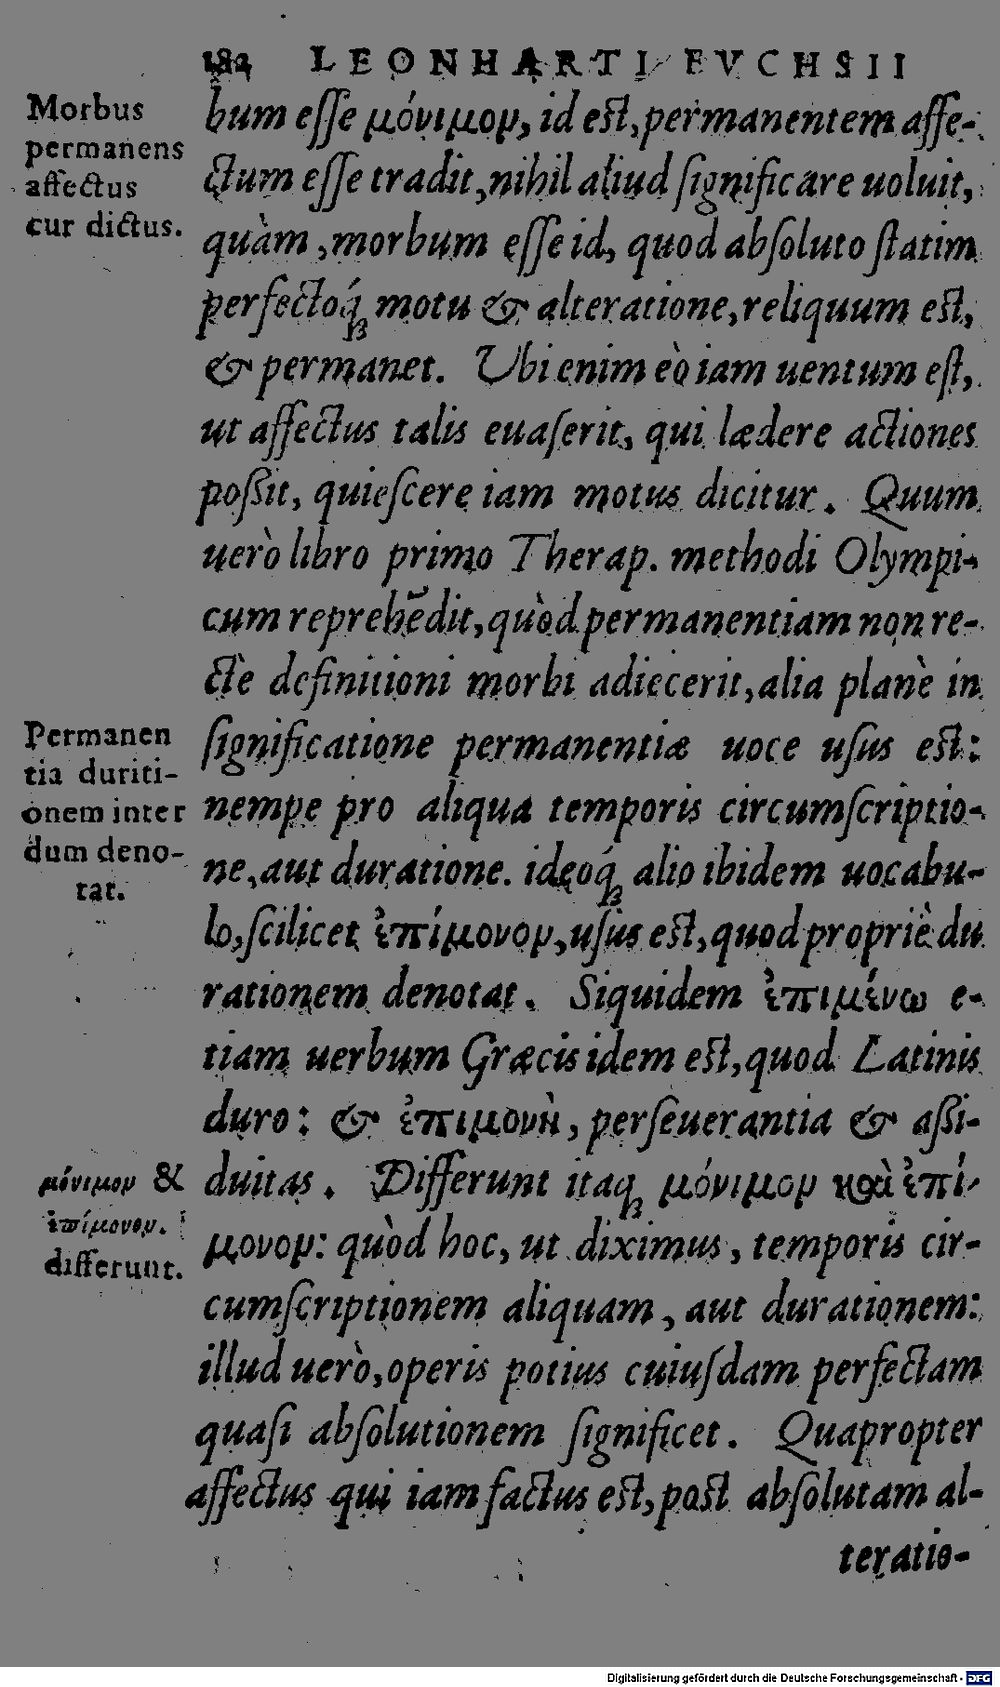 182 LEONHARTI FVCHSII
Morbus
permanens
affectus
cur dictus.
bum eſſe μόνιμον, id est, permanentem affe-
ctum eſſe tradit, nihil aliud ſignificare uoluit,
quàm, morbum eſſe id, quod abſoluto ſtatim
perfectoq́ꝫ motu & alteratione, reliquum est,
& permanet. Vbi enim eò iam uentum eſt,
ut affectus talis euaſerit, qui lædere actiones
poßit, quieſcere iam motus dicitur. Quum
uerò libro primo Therap. methodi Olympi-
cum reprehēdit, quòd permanentiam non re-
ctè definitioni morbi adiecerit, alia planè in
ſignificatione permanentiæ uoce uſus est:
nempe pro aliqua temporis circumſcriptio-
ne, aut duratione. ideoq́ꝫ alio ibidem uocabu-
lo, ſcilicet ἐπίμονον, uſus est, quod propriè du
rationem denotat. Siquidem ἐπιμένω e-
tiam uerbum Græcis idem est, quod Latinis
duro: & ἐπιμονὴ, perſeuerantia & aßi-
duitas. Differunt itaqꝫ μόνιμον καὶ ἐπί-
μονον: quòd hoc, ut diximus, temporis cir-
cumſcriptionem aliquam, aut durationem:
illud uerò, operis potius cuiuſdam perfectam
quaſi abſolutionem ſignificet. Quapropter
affectus qui iam factus est, post abſolutam al-
teratio-
Permanen
tia duriti-
onem inter
dum deno-
tat.
μόνιμον &
ἐπίμονον.
differunt.
Digitalisierung gefördert durch die Deutsche Forschungsgemeinschaft - DFG